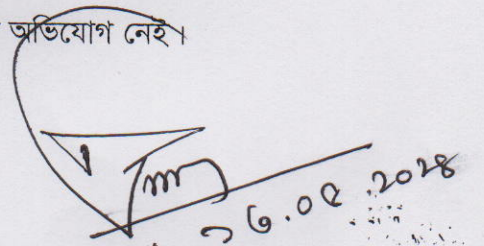 অভিযোগ নেই।
২৬.০৫.২০২৪